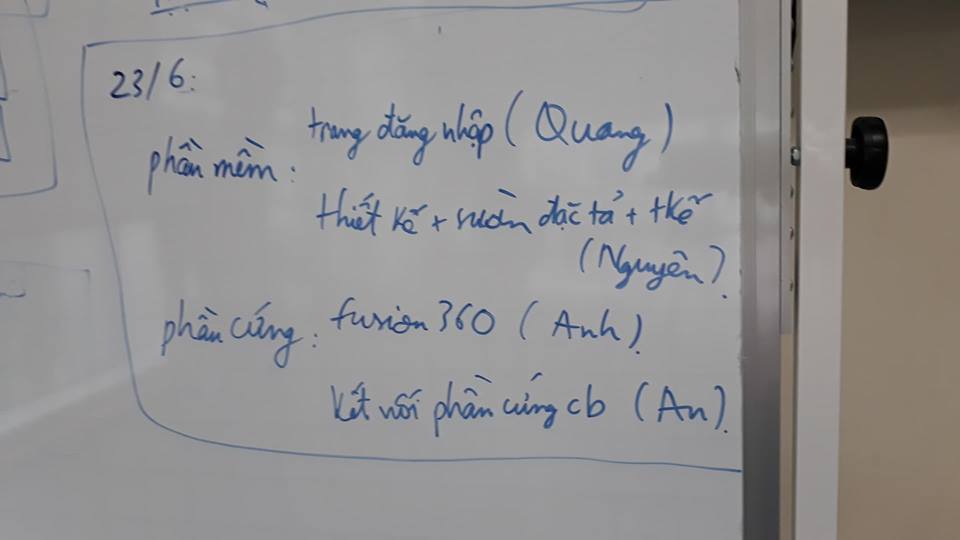 23/6:
trang đăng nhập (Quang)
phần mềm:
thiết kế + sườn đặc tả + tkế
(Nguyên).
phần cứng: fusion 360 (Anh).
kết nối phần cứng cb (An).